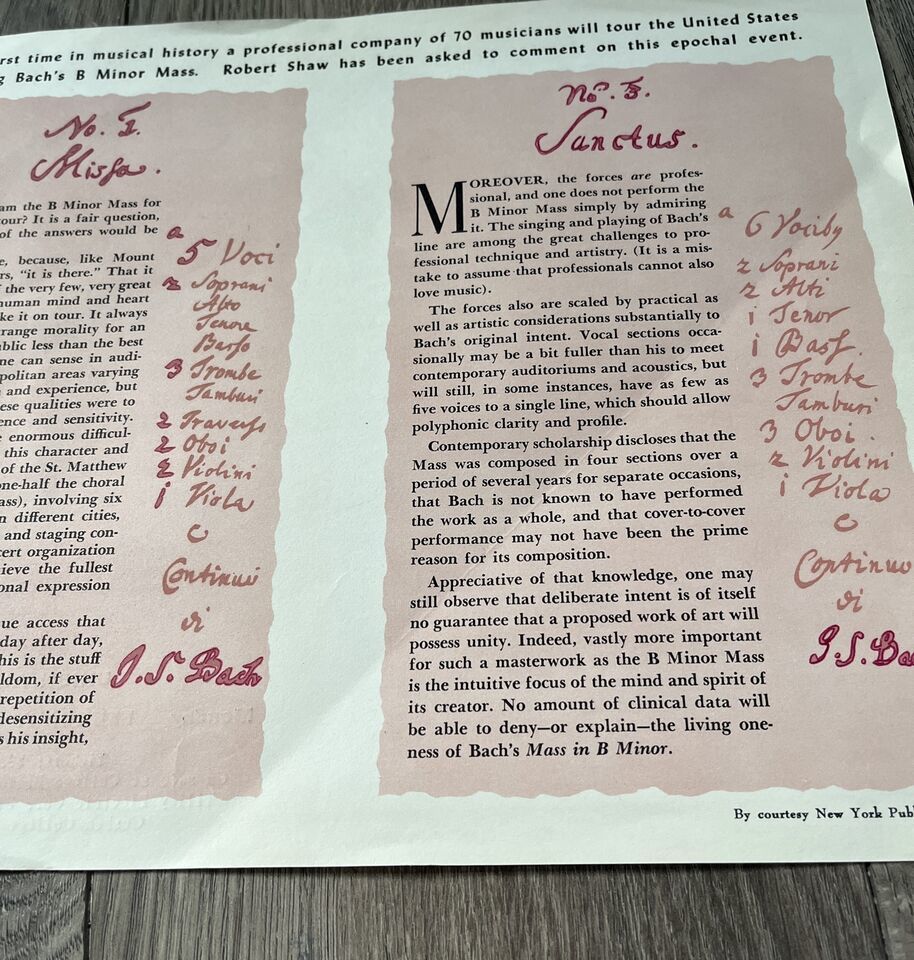 rst time in musical history a professional company of 70 musicians will tour the United States
g Bach's B Minor Mass. Robert Shaw has been asked to comment on this epochal event.
No. I.
Missa.
am the B Minor Mass for
our? It is a fair question,
of the answers would be
e, because, like Mount
rs, "it is there." That it
f the very few, very great
human mind and heart
ke it on tour. It always
range morality for an
ublic less than the best
ne can sense in audi-
politan areas varying
and experience, but
ese qualities were to
ence and sensitivity.
enormous difficul-
this character and
of the St. Matthew
one-half the choral
ass), involving six
n different cities,
and staging con-
cert organization
ieve the fullest
onal expression
ue access that
day after day,
his is the stuff
ldom, if ever
repetition of
desensitizing
s his insight,
a
5 Voci
2 Soprani
Alto
Tenore
Basso
3 Trombe
Tamburi
2 Travers
2 Oboi
2 Violini
1 Viola
e
Continuo
di
J. S. Bach
No. 3.
Sanctus.
MOREOVER, the forces are profes-
sional, and one does not perform the
B Minor Mass simply by admiring
it. The singing and playing of Bach's
line are among the great challenges to pro-
fessional technique and artistry. (It is a mis-
take to assume that professionals cannot also
love music).
The forces also are scaled by practical as
well as artistic considerations substantially to
Bach's original intent. Vocal sections occa-
sionally may be a bit fuller than his to meet
contemporary auditoriums and acoustics, but
will still, in some instances, have as few as
five voices to a single line, which should allow
polyphonic clarity and profile.
Contemporary scholarship discloses that the
Mass was composed in four sections over a
period of several years for separate occasions,
that Bach is not known to have performed
the work as a whole, and that cover-to-cover
performance may not have been the prime
reason for its composition.
Appreciative of that knowledge, one may
still observe that deliberate intent is of itself
no guarantee that a proposed work of art will
possess unity. Indeed, vastly more important
for such a masterwork as the B Minor Mass
is the intuitive focus of the mind and spirit of
its creator. No amount of clinical data will
be able to deny—or explain—the living one-
ness of Bach's Mass in B Minor.
a
6 Vocibg
2 Soprani
2 Alti
1 Tenor
1 Bass.
3 Trombe
Tamburi
3 Oboi.
2 Violini
1 Viola
e
Continuo
di
J. S. Ba
By courtesy New York Publ